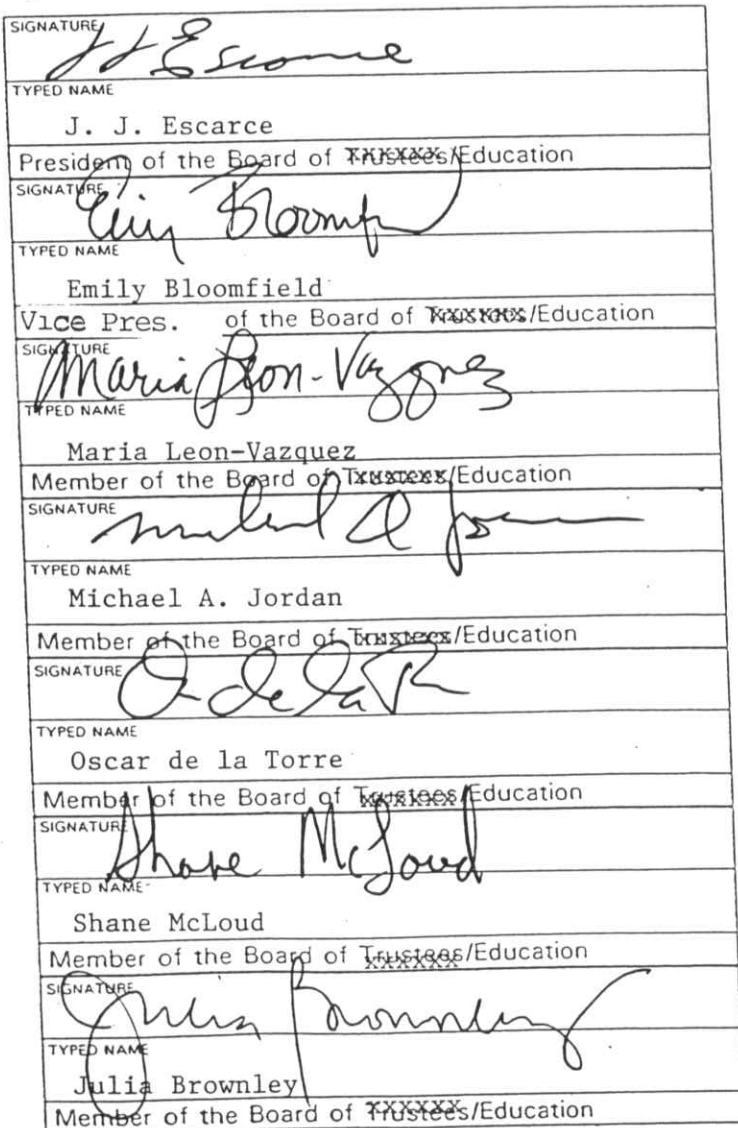 SIGNATURE
J J Escarce
TYPED NAME
J. J. Escarce
President of the Board of Trustees/Education
SIGNATURE
Emily Bloomfield
TYPED NAME
Emily Bloomfield
Vice Pres. of the Board of Trustees/Education
SIGNATURE
Maria Leon-Vazquez
TYPED NAME
Maria Leon-Vazquez
Member of the Board of Trustees/Education
SIGNATURE
Michael A Jordan
TYPED NAME
Michael A. Jordan
Member of the Board of Trustees/Education
SIGNATURE
O de la T
TYPED NAME
Oscar de la Torre
Member of the Board of Trustees/Education
SIGNATURE
Shane McLoud
TYPED NAME
Shane McLoud
Member of the Board of Trustees/Education
SIGNATURE
Julia Brownley
TYPED NAME
Julia Brownley
Member of the Board of Trustees/Education